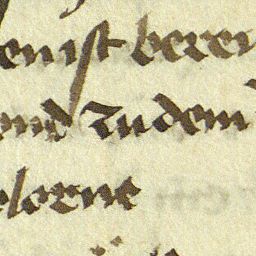 en ist berei
ond zu dem
lorne